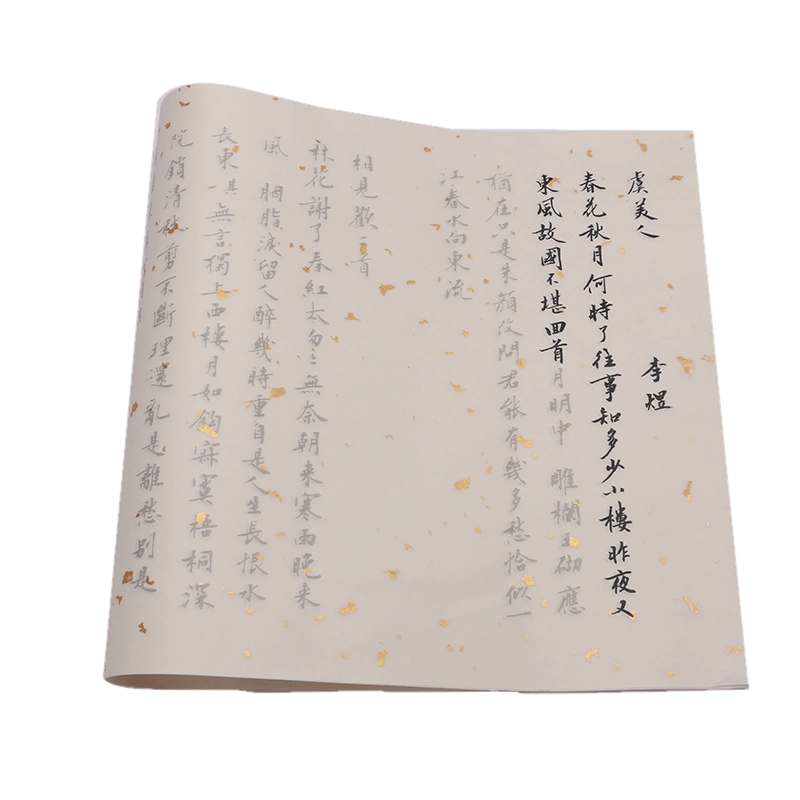 虞美人 李煜
春花秋月何時了往事知多少小樓昨夜又
東風故國不堪回首月明中 雕欄玉砌應
猶在只是朱顏改問君能有幾多愁恰似一
江春水向東流
相見歡二首
林花謝了春紅太匆匆無奈朝來寒雨晚來
風 胭脂淚留人醉幾時重自是人生長恨水
長東 其一 無言獨上西樓月如鉤寂寞梧桐深
院鎖清秋剪不斷理還亂是離愁別是